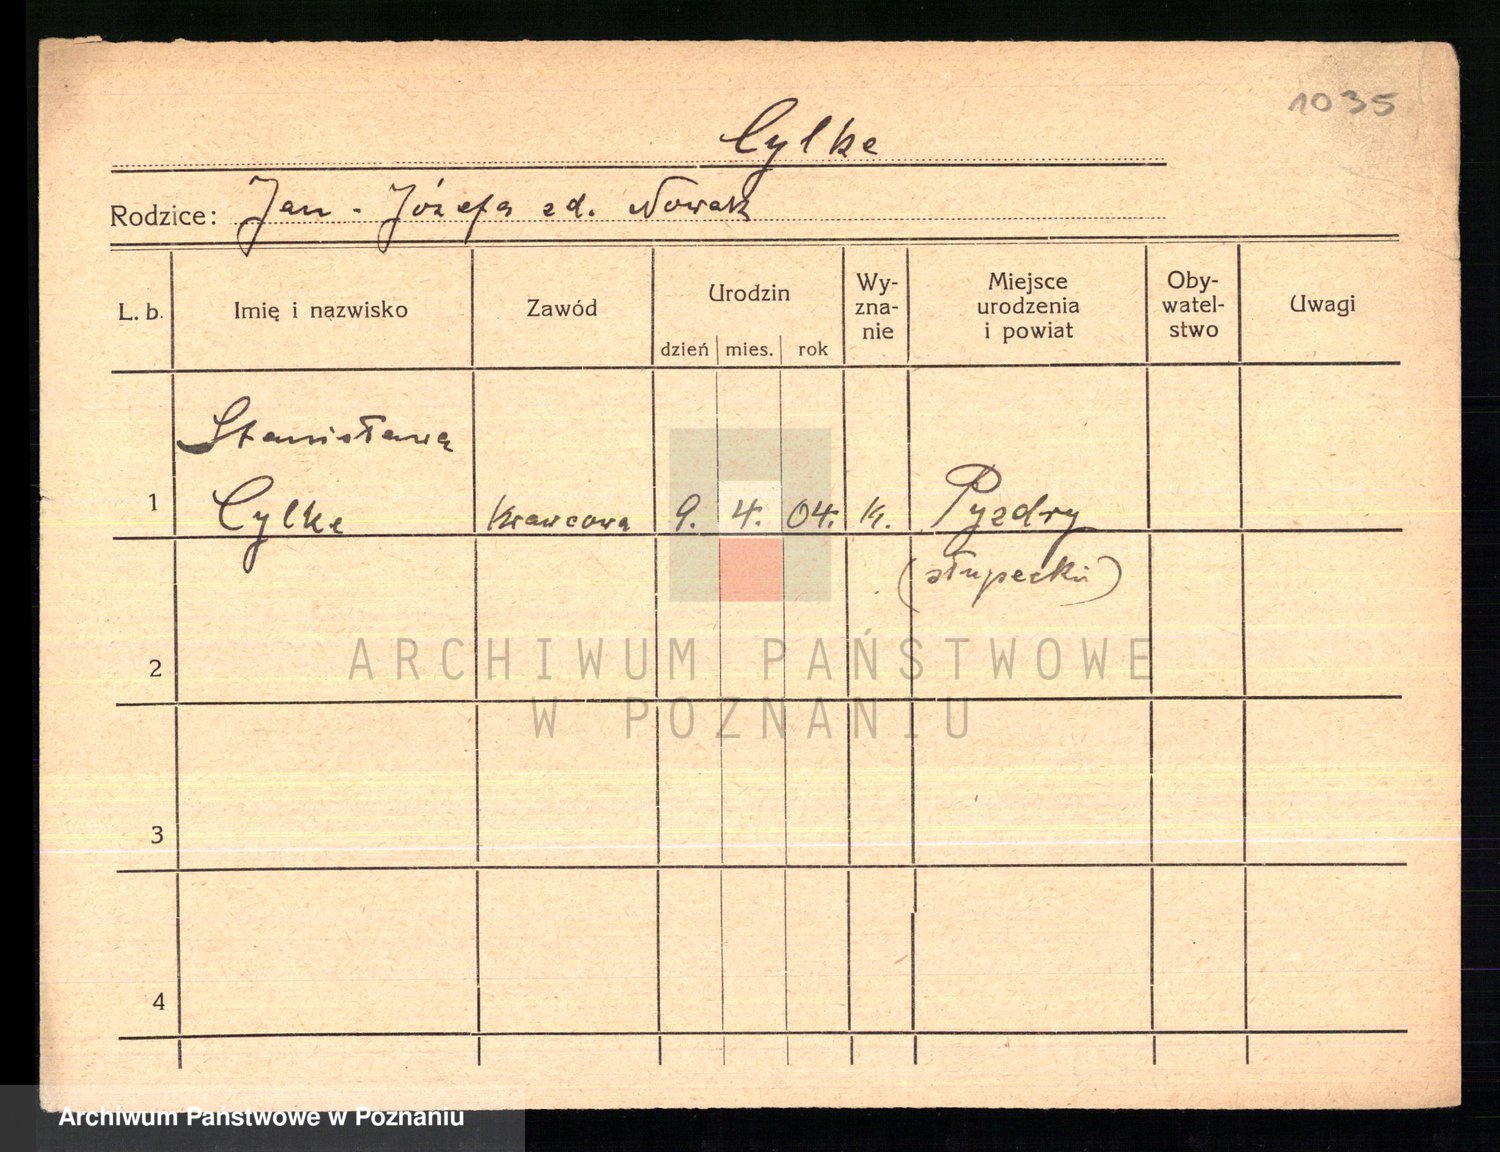 1035
Cylke
Rodzice: Jan - Józefa zd. Nowak
L. b. Imię i nazwisko Zawód Urodzin dzień mies. rok Wy-zna-nie Miejsce urodzenia i powiat Oby-watel-stwo Uwagi
Stanisława
1 Cylke Krawcowa 9. 4. 04. K. Pyzdry
(słupecki)
2
ARCHIWUM PAŃSTWOWE
W POZNANIU
3
4
Archiwum Państwowe w Poznaniu